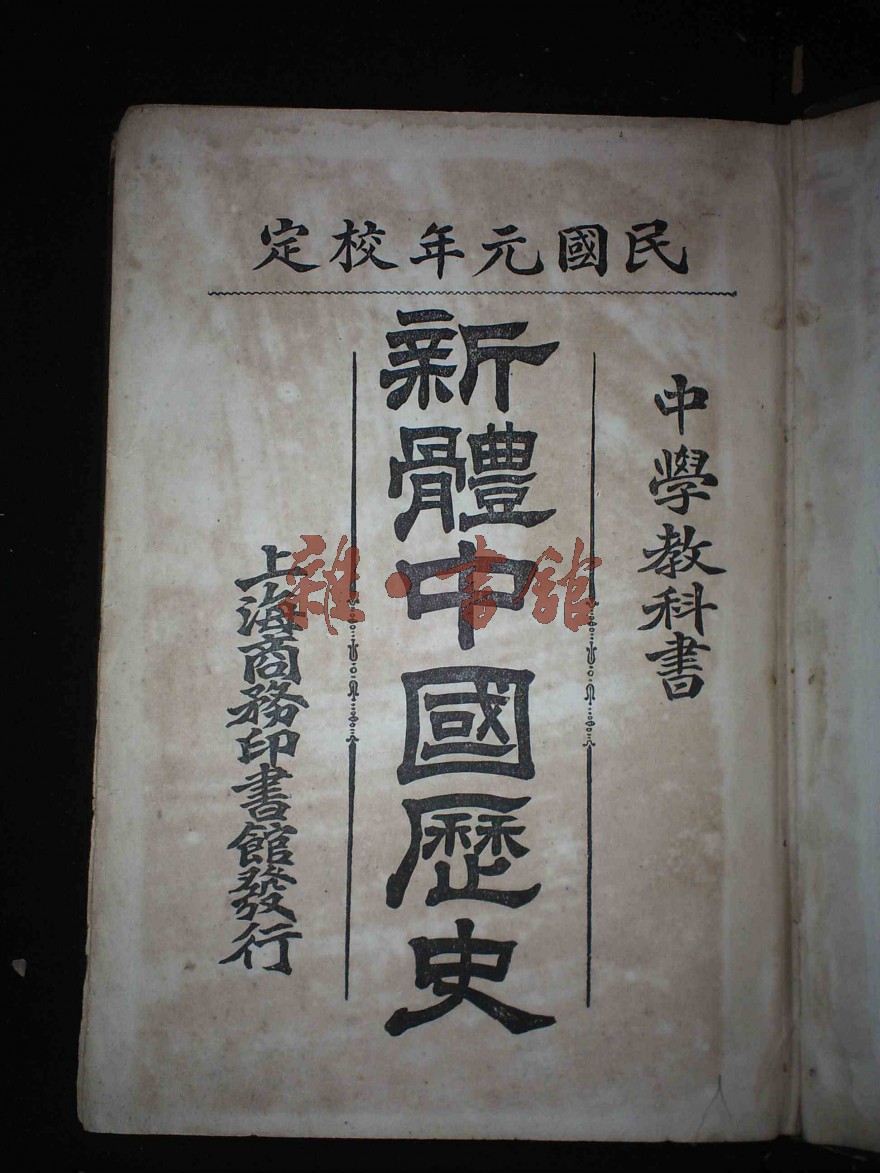 民國元年校定
中學教科書
新體中國歷史
上海商務印書館發行
雜·書館